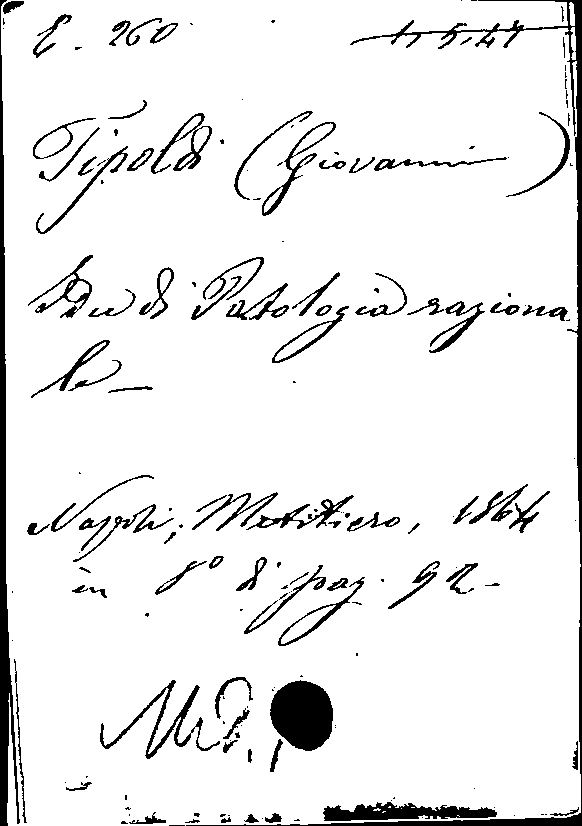 E. 260 1, 5, 47
Tipoldi (Giovanni)
Idee di Patologia raziona
le
Napoli, Metitiero, 1864
in 8º di pag. 92
Med.